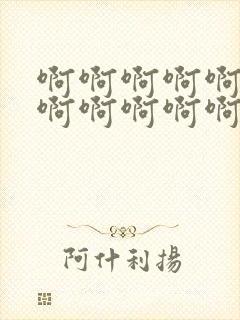 啊啊啊啊啊
啊啊啊啊啊
阿什利揚